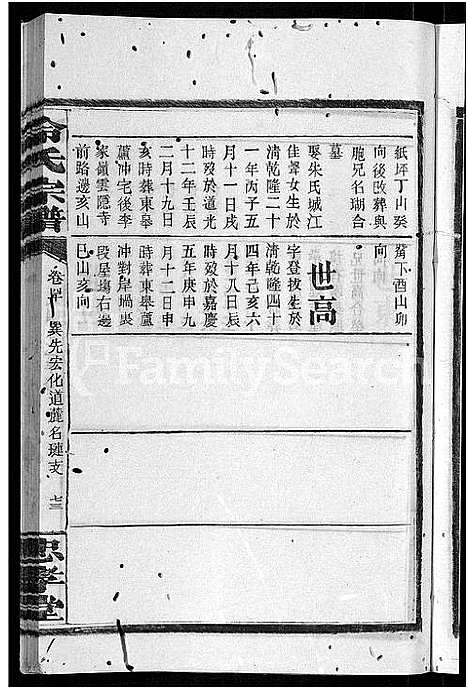 紙坪丁山癸
向後改葬與
胞兄名瑚合
墓
娶朱氏城江
佳聲女生於
清乾隆二十
一年丙子五
月十一日戌
時歿於道光
十二年壬辰
二月十九日
亥時葬東舉
蘆冲宅後李
家嶺雲隱寺
前路邊亥山
巳山亥向
下酉山卯
向
世高
字登拔生於
清乾隆四十
四年己亥六
月十八日辰
時歿於嘉慶
五年庚申九
月十二日申
時葬東舉蘆
冲對岸塌裴
段屋塲右邊
冷氏宗譜
巽先宏化道麓名璉支
七三
忠孝堂
FamilySearch